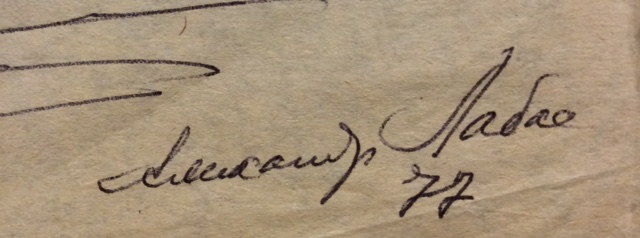 Александр Лабас
77